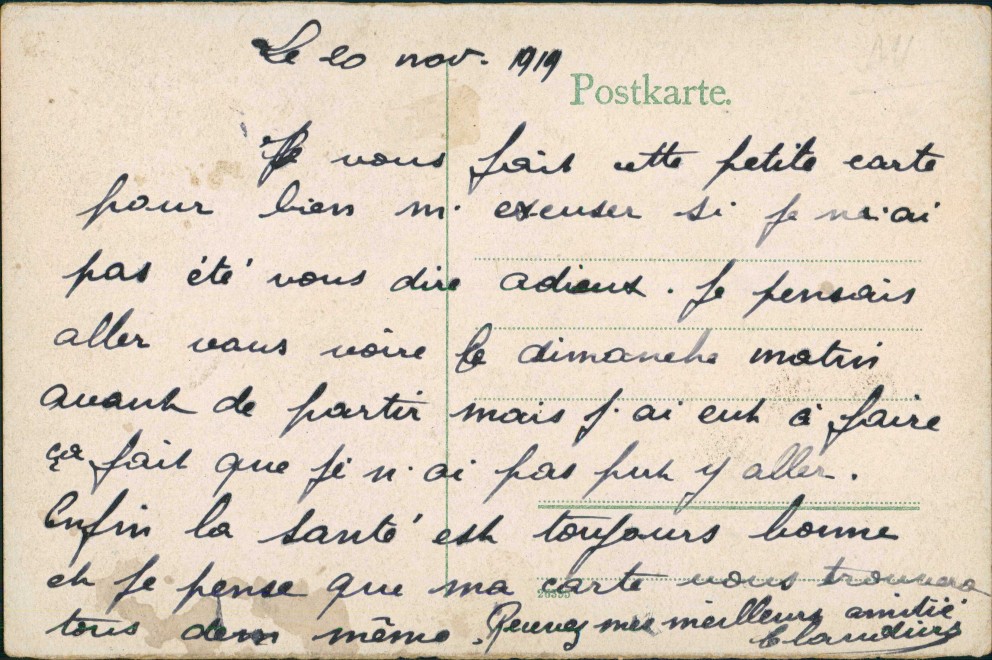 Le 20 nov. 1919
Postkarte.
Je vous fait cette petite carte
pour bien m'excuser si je n'ai
pas été vous dire adieux. Je pensais
aller vous voire le dimanche matin
avant de partir mais j'ai eut à faire
ça fait que je n'ai pas put y aller.
Enfin la santé est toujours bonne
et je pense que ma carte vous trouvera
tous de même. Recevez mes meilleurs amitié
Claudius